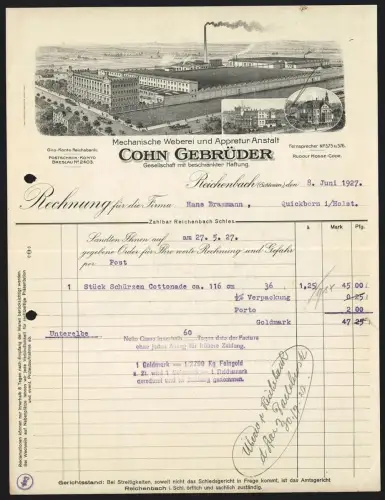 Mechanische Weberei und Appretur-Anstalt
Giro-Konto Reichsbank.
Postscheck-Konto
Breslau Nº 2403.
COHN GEBRÜDER
Gesellschaft mit beschränkter Haftung.
Fernsprecher Nº 5/5 u. 5/6.
Rudolf Mosse-Code.
Reichenbach (Schlesien), den 8. Juni 1927.
Rechnung für die Firma Hans Brasmann, Quickborn i/Holst.
Zahlbar Reichenbach Schles.
à Mark Pfg.
Sandten Ihnen auf am 27. 5. 27.
gegebene Order für Ihre werte Rechnung und Gefahr
per Post
1 Stück Schürzen Cottonade ca. 116 cm 36 1,25 45 00
½% Verpackung 0 25
Porto 2 00
Goldmark 47 25
Unterelbe 60
Netto Cassa innerhalb Tagen dato der Factura
ohne jeden Abzug für frühere Zahlung.
1 Goldmark = 1/2790 Kg Feingold
Gerichtsstand: Bei Streitigkeiten, soweit nicht das Schiedsgericht in Frage kommt, ist das Amtsgericht
Reichenbach i. Schl. örtlich und sachlich zuständig.